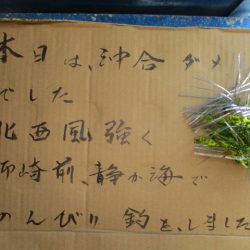 本日は、沖合ダメ
でした
北西風強く
師崎前、静か海で
のんびり釣を、しました